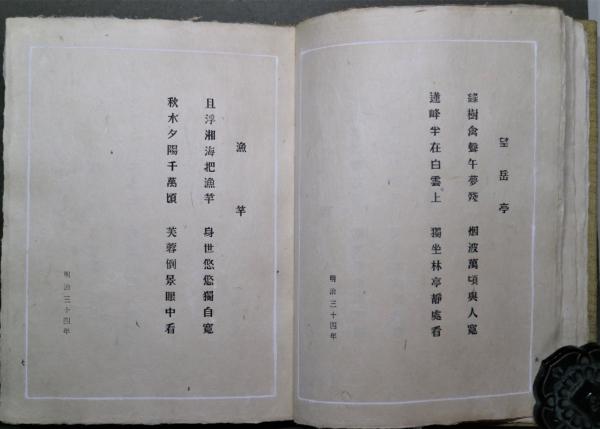 望岳亭
綠樹禽聲午夢殘　烟波萬頃與人寬
連峰半在白雲上　獨坐林亭靜處看
明治三十四年
漁竿
且浮湘海把漁竿　身世悠悠獨自寬
秋水夕陽千萬頃　芙蓉倒景眼中看
明治三十四年